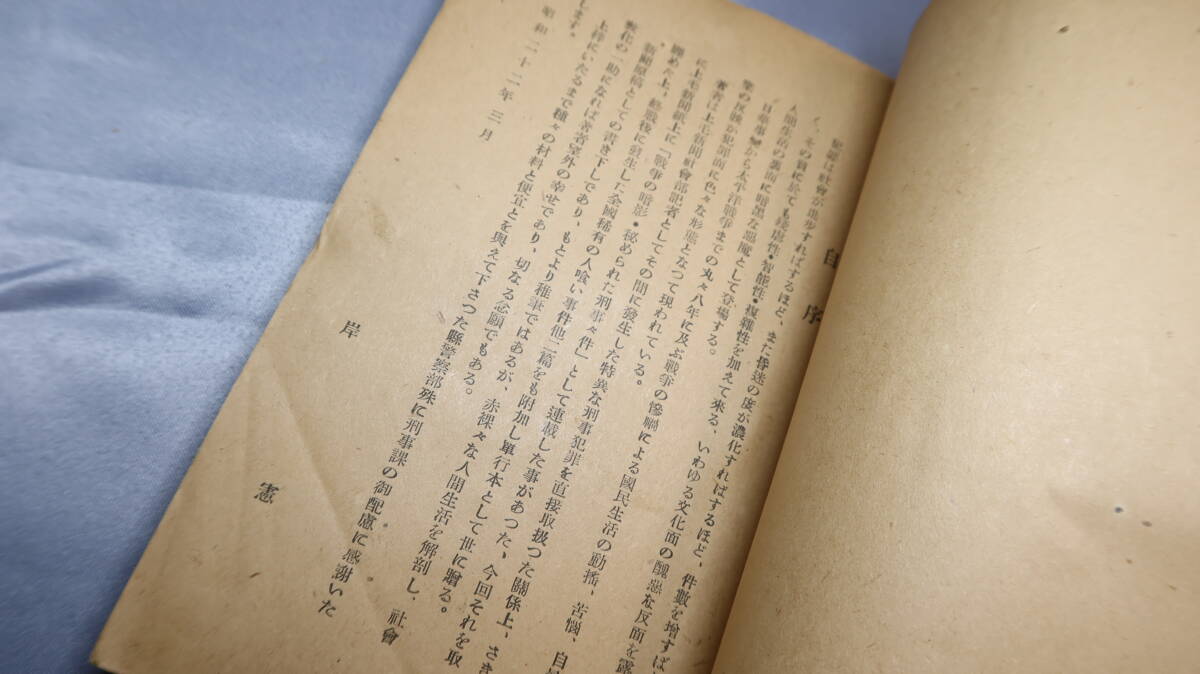 自序
犯罪は社會が進歩すればするほど、また昏迷の度が濃化すればするほど、件數を増すば
く、その質に於ても殘虐性・智能性・複雜性を加えて來る、いわゆる文化面の醜惡な反面を露
人間生活の裏面に暗黑な惡魔として登場する。
日華事變から太平洋戰爭までの丸々八年に及ぶ戰爭の慘禍による國民生活の動搖、苦惱、自
業の反映が犯罪面に色々な形態となつて現われている。
著者は上毛新聞社會部記者としてその間に發生した特異な刑事犯罪を直接取扱つた關係上、さき
に上毛新聞紙上に「戰爭の暗影・秘められた刑事々件」として連載した事があつた、今回それを取
纒め、上
新聞原稿、終戰後に發生した全國稀有の人喰い事件他二篇をも附加し單行本として世に贈る。
の書き下しであり、もとより稚筆ではあるが、赤裸々な人間生活を解剖し、社會
敎化の一助としてになれば著者望外の幸せであり、切なる念願でもある。
上梓にいたるまで種々の材料と便宜とを與えて下さつた縣警察部殊に刑事課の御配慮に感謝いた
します。
昭和二十二年三月
岸憲